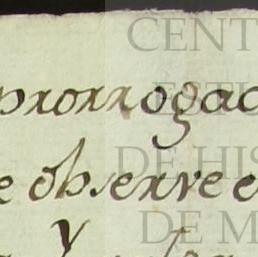 CENT
prorrogac
ESTU
e observe e
DE HIS
y
DE M